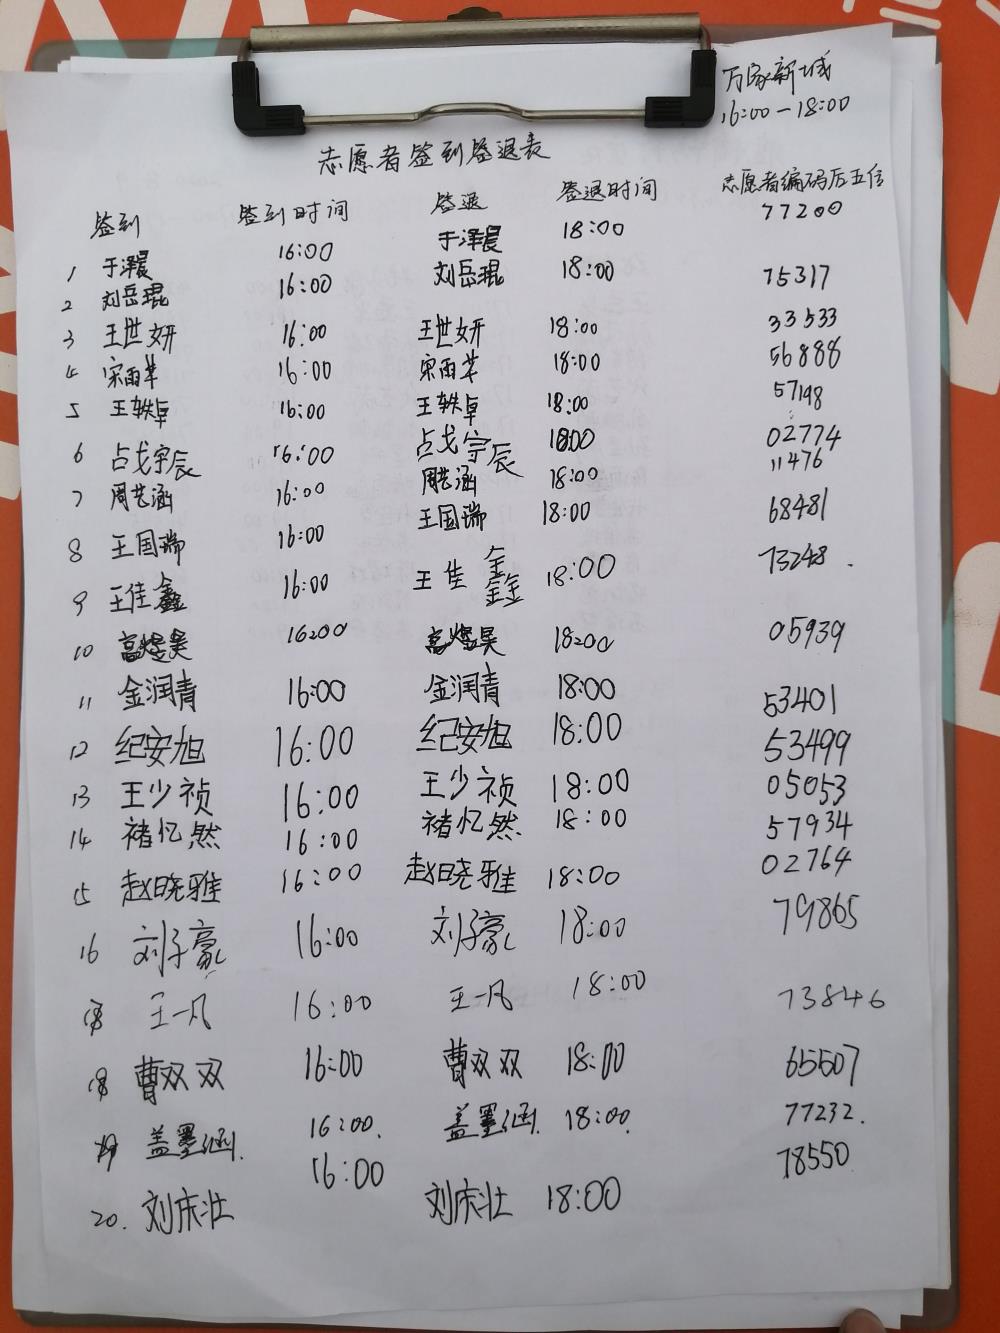 万家新城
16:00-18:00
志愿者签到签退表
签到 签到时间 签退 签退时间 志愿者编码后五位
1 于泽晨 16:00 于泽晨 18:00 77200
2 刘岳琨 16:00 刘岳琨 18:00 75317
3 王世妍 16:00 王世妍 18:00 33533
4 宋雨苹 16:00 宋雨苹 18:00 56888
5 王轶卓 16:00 王轶卓 18:00 57198
6 占戈宇辰 16:00 占戈宇辰 1800 02774
7 周艺涵 16:00 周艺涵 18:00 11476
8 王国瑞 16:00 王国瑞 18:00 68481
9 王佳鑫 16:00 王佳鑫 18:00 73248.
10 高煜昊 16:00 高煜昊 18:00 05939
11 金润青 16:00 金润青 18:00 53401
12 纪安旭 16:00 纪安旭 18:00 53499
13 王少祯 16:00 王少祯 18:00 05053
14 褚忆然 16:00 褚忆然 18:00 57934
15 赵晓雅 16:00 赵晓雅 18:00 02764
16 刘子豪 16:00 刘子豪 18:00 79865
王一凡 16:00 王一凡 18:00 73846
18 曹双双 16:00 曹双双 18:00 65507
19 盖墨涵. 16:00. 盖墨涵. 18:00. 77232.
20. 刘庆壮 16:00 刘庆壮 18:00 78550